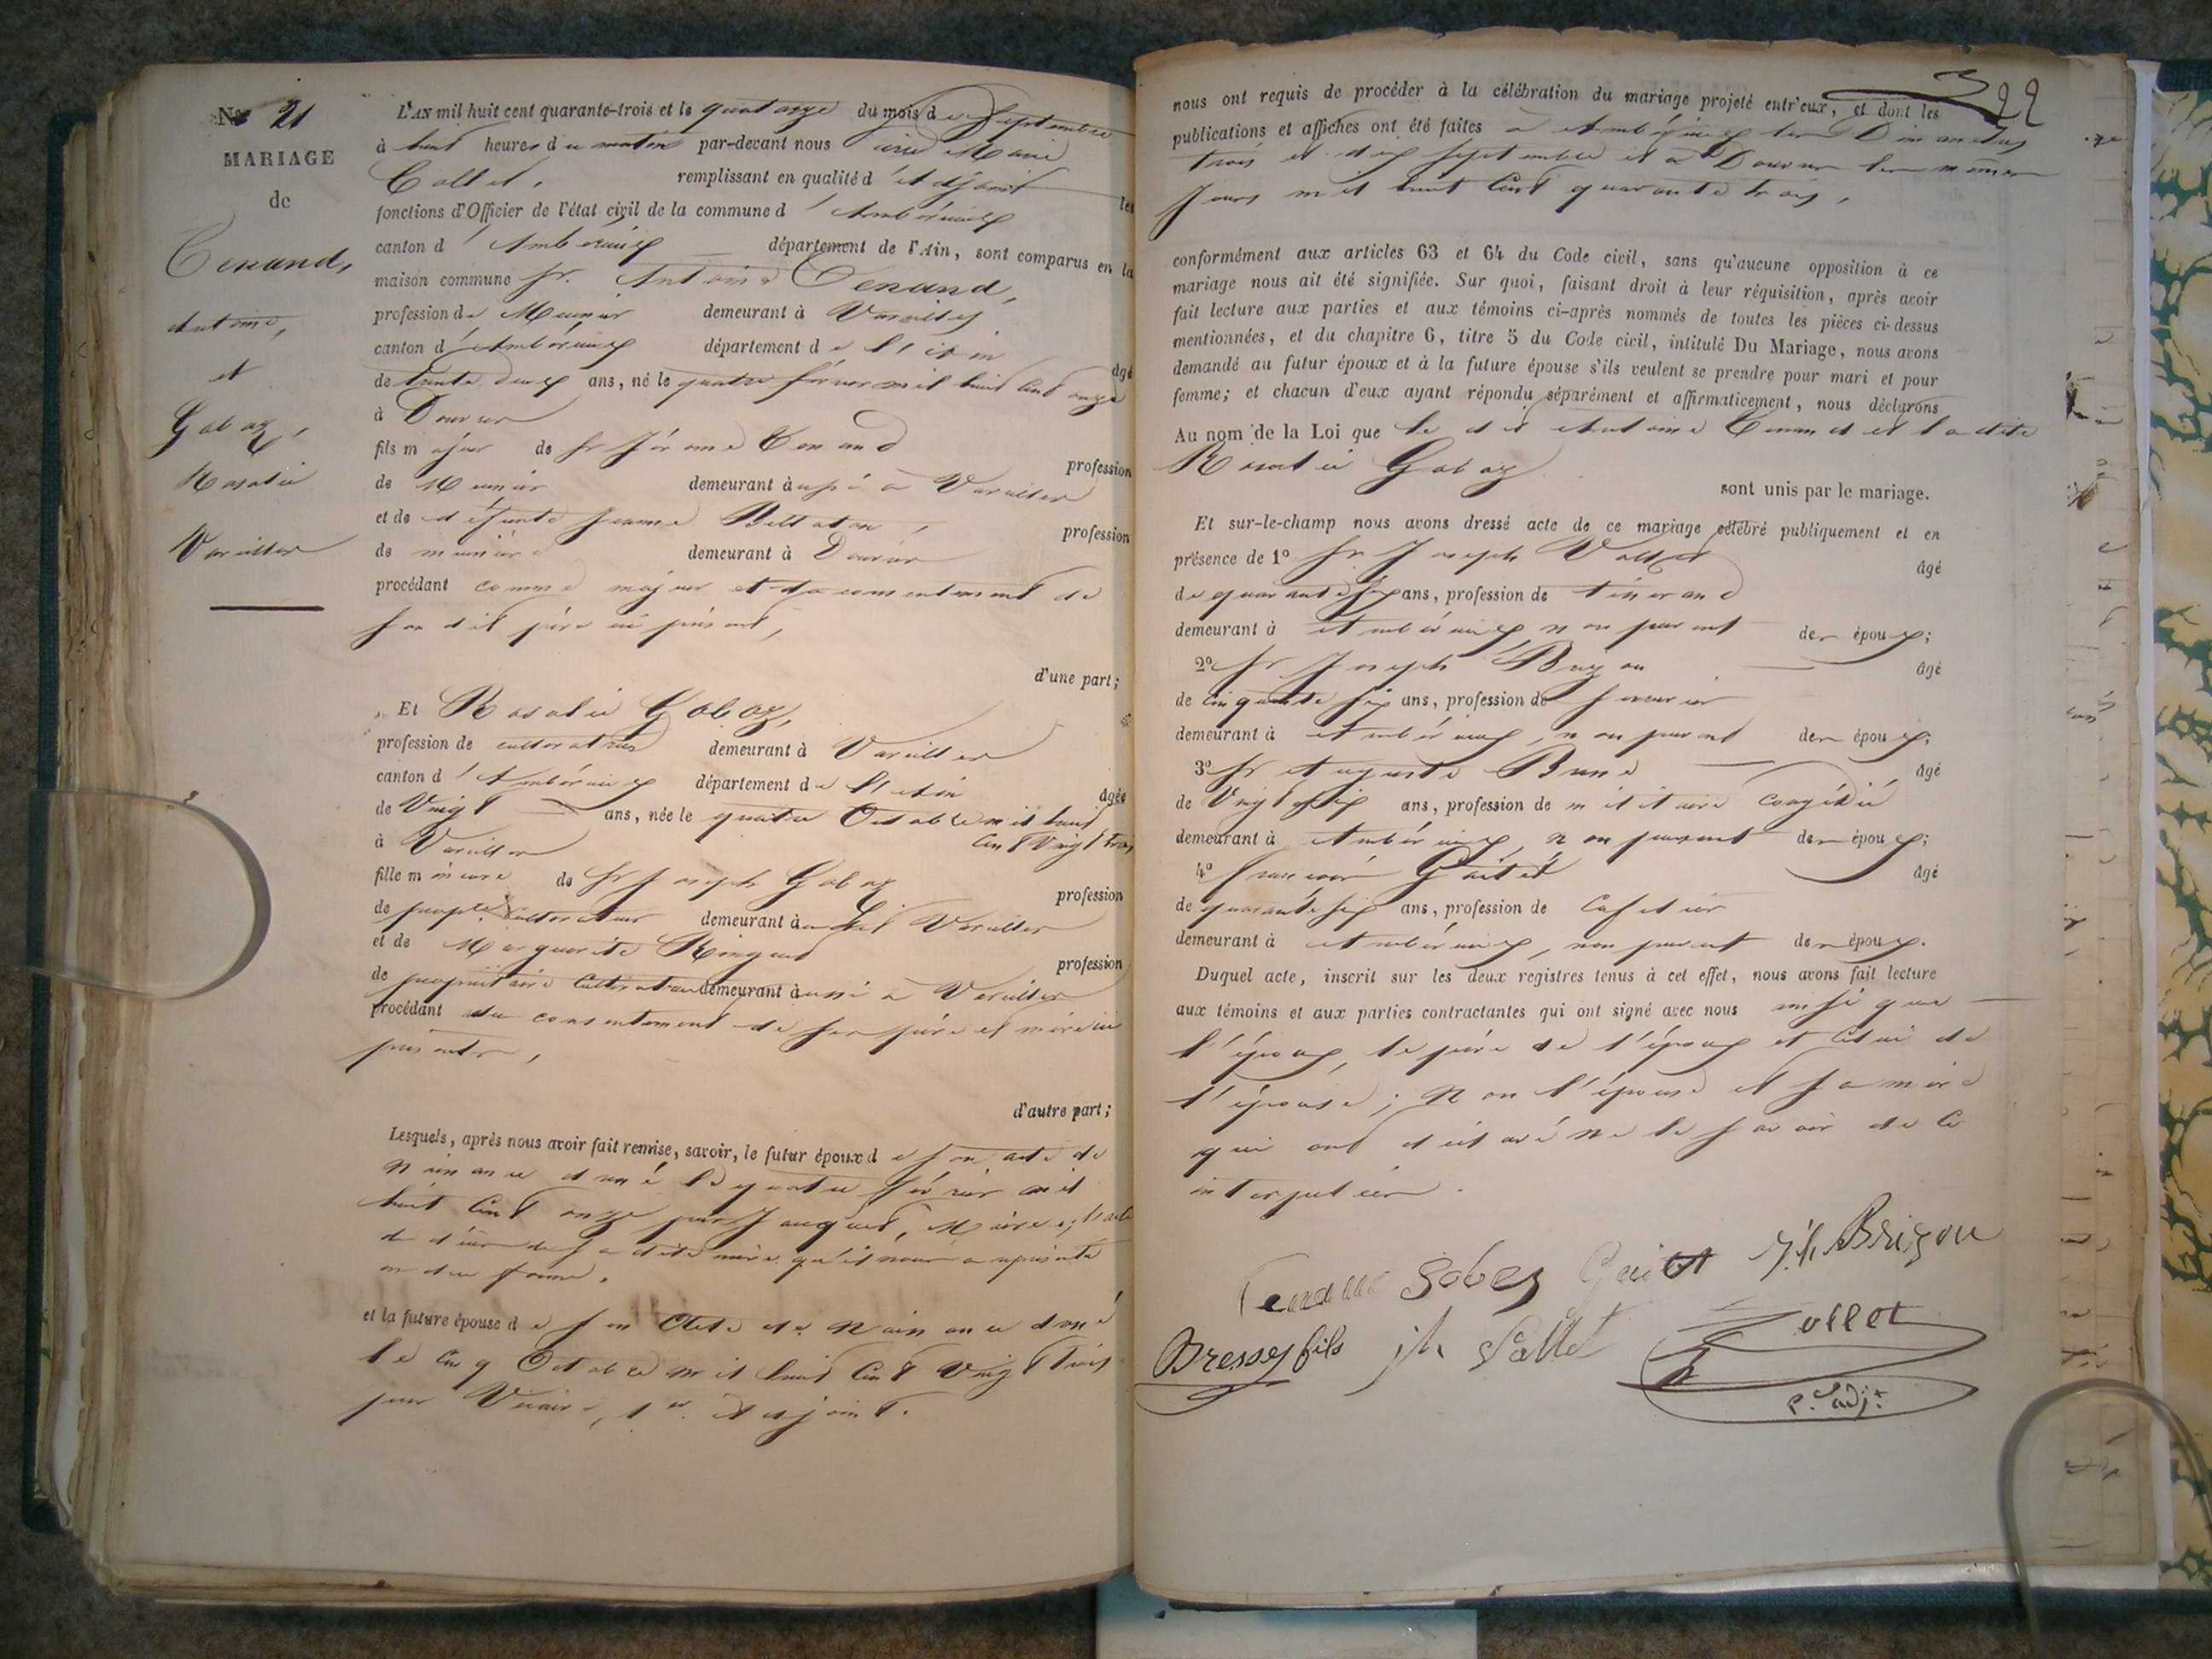 N° 21
MARIAGE
de
Tenand,
Antoine,
et
Goboz,
Rosalie
Vareilles
L'AN mil huit cent quarante-trois et le quatorze du mois de Septembre
à huit heures du matin par-devant nous Marie
Collet, remplissant en qualité d'Adjoint les
fonctions d'Officier de l'état civil de la commune d'Ambérieux
canton d'Ambérieux département de l'Ain, sont comparus en la
maison commune Sr. Antoine Tenand,
profession de Meunier demeurant à Vareilles
canton d'Ambérieux département de l'Ain âgé
de trente deux ans, né le quatre février mil huit cent onze
à Douvres
fils majeur de Sr Jérome Tenand profession
de Meunier demeurant aussi à Vareilles
et de défunte Jeanne profession
de meunière demeurant à Douvres
procédant comme majeur et du consentement de
son dit père ici présent,
d'une part;
Et Rosalie Goboz,
profession de cultivatrice demeurant à Vareilles
canton d'Ambérieux département de l'Ain âgée
de Vingt ans, née le quatre Octobre mil huit
cent Vingt trois
à Vareilles
fille mineure de Sr Joseph Goboz profession
de cultivateur demeurant au dit Vareilles
et de Marguerite profession
de propriétaire cultivatrice demeurant aussi à Vareilles
procédant du consentement de ses père et mère ici
présents,
d'autre part;
Lesquels, après nous avoir fait remise, savoir, le futur époux de son acte de
Naissance donné le quatre février mil
huit cent onze par Jacquet, Maire,
de décès de sa dite mère qu'il nous a représenté
en due forme.
et la future épouse de son Acte de Naissance donné
le cinq Octobre mil huit cent Vingt trois
par Vicaire, 1er Adjoint.
322
nous ont requis de procéder à la célébration du mariage projeté entr'eux, et dont les
publications et affiches ont été faites à Ambérieux les Dimanches
trois et dix septembre et à Douvres les mêmes
Jours mil huit cent quarante trois,
conformément aux articles 63 et 64 du Code civil, sans qu'aucune opposition à ce
mariage nous ait été signifiée. Sur quoi, faisant droit à leur réquisition, après avoir
fait lecture aux parties et aux témoins ci-après nommés de toutes les pièces ci-dessus
mentionnées, et du chapitre 6, titre 5 du Code civil, intitulé Du Mariage, nous avons
demandé au futur époux et à la future épouse s'ils veulent se prendre pour mari et pour
femme; et chacun d'eux ayant répondu séparément et affirmativement, nous déclarons
Au nom de la Loi que le dit Antoine Tenand et la dite
Rosalie Goboz
sont unis par le mariage.
Et sur-le-champ nous avons dressé acte de ce mariage célébré publiquement et en
présence de 1° Sr Joseph Vallet âgé
de quarante six ans, profession de tisserand
demeurant à Ambérieux, non parent des époux;
2° Sr Joseph Brizon âgé
de cinquante six ans, profession de serrurier
demeurant à Ambérieux, non parent des époux;
3° Sr Auguste âgé
de Vingt six ans, profession de militaire congédié
demeurant à Ambérieux, non parent des époux;
4° François âgé
de quarante six ans, profession de cafetier
demeurant à Ambérieux, non parent des époux.
Duquel acte, inscrit sur les deux registres tenus à cet effet, nous avons fait lecture
aux témoins et aux parties contractantes qui ont signé avec nous ainsi que
l'époux, le père de l'époux et celui de
l'épouse; Non l'épouse et sa mère
qui ont déclaré ne le savoir de ce
interpellées.
Tenand Goboz Jh Brizon
fils jh Vallet Collet
p. adjt